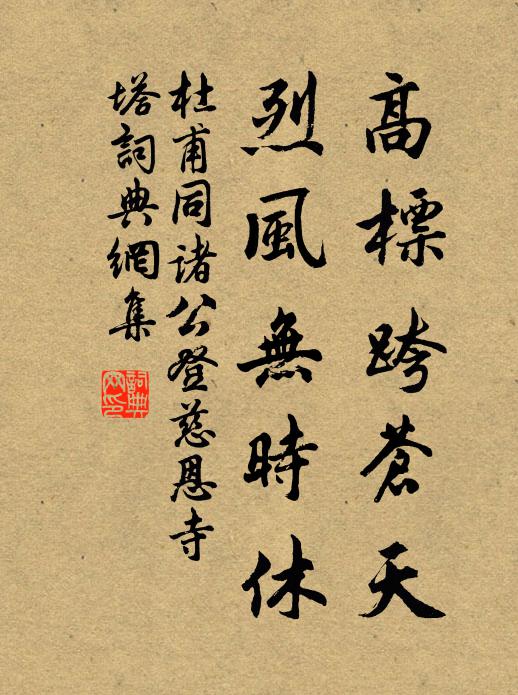 高標跨蒼天
烈風無時休
杜甫同諸公登慈恩寺
塔詞典網集
詞典
网印